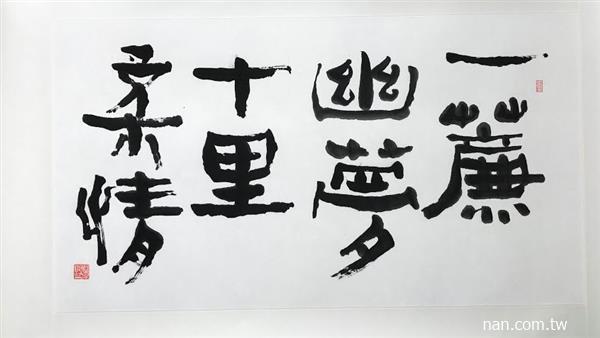 一簾
幽夢
十里
柔情
nan.com.tw